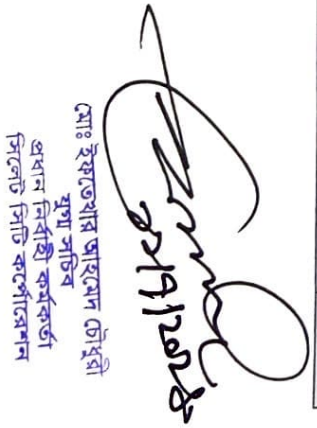 ২১/৭/২০২৪
মোঃ ইফতেখার আহমেদ চৌধুরী
যুগ্ম সচিব
প্রধান নির্বাহী কর্মকর্তা
সিলেট সিটি কর্পোরেশন